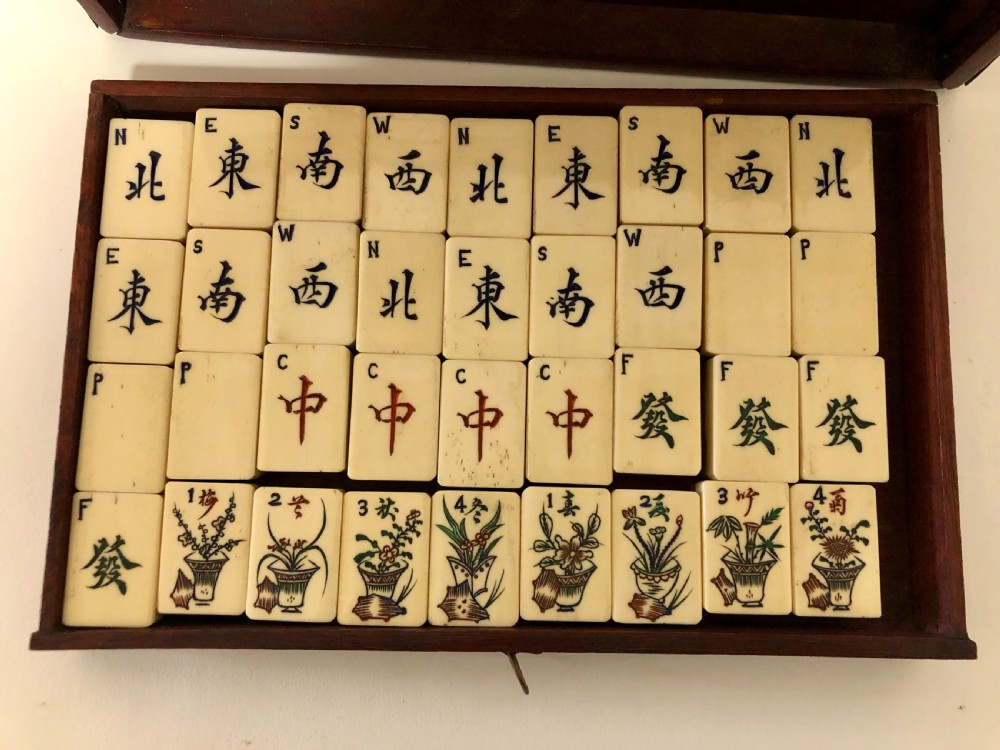 N 北 E 東 S 南 W 西 N 北 E 東 S 南 W 西 N 北
E 東 S 南 W 西 N 北 E 東 S 南 W 西 P P
P P C 中 C 中 C 中 C 中 F 發 F 發 F 發
F 發 1 梅 2 兰 3 秋 4 冬 1 春 2 夏 3 竹 4 菊